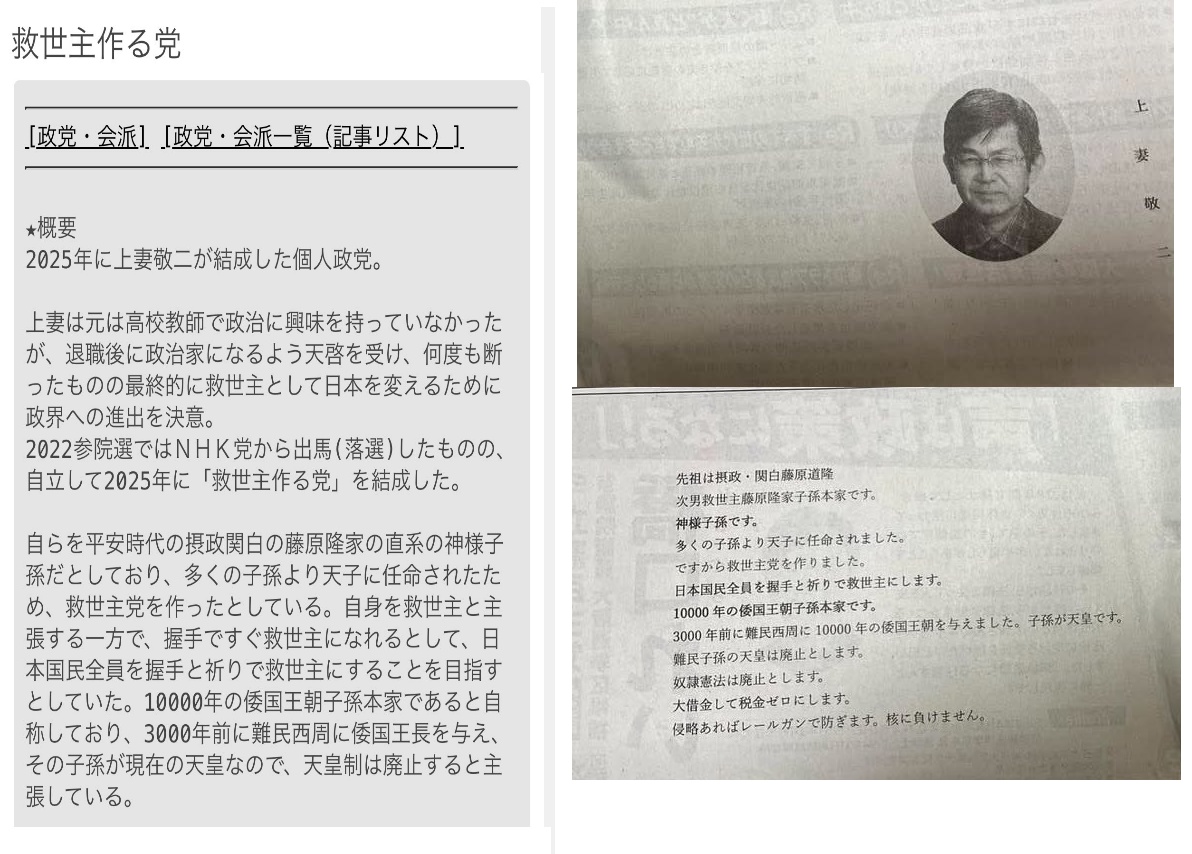 救世主作る党
[政党・会派] [政党・会派一覧（記事リスト）]
★概要
2025年に上妻敬二が結成した個人政党。
上妻は元は高校教師で政治に興味を持っていなかった
が、退職後に政治家になるよう天啓を受け、何度も断
ったものの最終的に救世主として日本を変えるために
政界への進出を決意。
2022参院選ではＮＨＫ党から出馬(落選)したものの、
自立して2025年に「救世主作る党」を結成した。
自らを平安時代の摂政関白の藤原隆家の直系の神様子
孫だとしており、多くの子孫より天子に任命されたた
め、救世主党を作ったとしている。自身を救世主と主
張する一方で、握手ですぐ救世主になれるとして、日
本国民全員を握手と祈りで救世主にすることを目指す
としていた。10000年の倭国王朝子孫本家であると自
称しており、3000年前に難民西周に倭国王長を与え、
その子孫が現在の天皇なので、天皇制は廃止すると主
張している。
上妻敬二
先祖は摂政・関白藤原道隆
次男救世主藤原隆家子孫本家です。
神様子孫です。
多くの子孫より天子に任命されました。
ですから救世主党を作りました。
日本国民全員を握手と祈りで救世主にします。
10000 年の倭国王朝子孫本家です。
3000 年前に難民西周に 10000 年の倭国王朝を与えました。子孫が天皇です。
難民子孫の天皇は廃止とします。
奴隷憲法は廃止とします。
大借金して税金ゼロにします。
侵略あればレールガンで防ぎます。核に負けません。